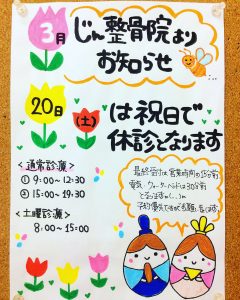 3月 じん整骨院より
お知らせ
20日(土)は祝日で
休診となります
<通常診療>
①9:00~12:30
②15:00~19:30
<土曜診療>
8:00~15:00
最終受付は営業時間の15分前
電気、ウォーターベッドは30分前
となります(..)m
予約優先ですが お願い致します。